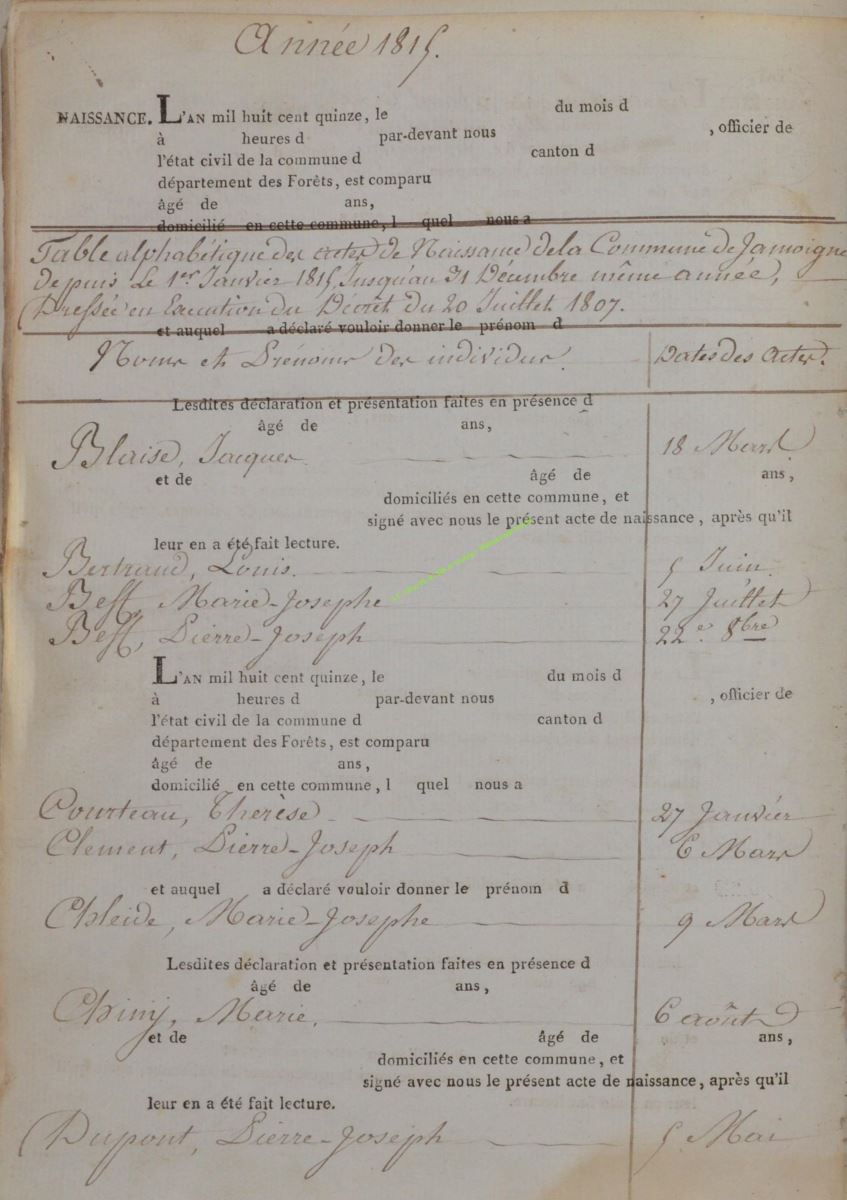 Année 1815.
NAISSANCE. L'AN mil huit cent quinze, le du mois d
à heures d par-devant nous , officier de
l'état civil de la commune d canton d
département des Forêts, est comparu
âgé de ans,
domicilié en cette commune, l quel nous a
Table alphabétique des actes de Naissance de la Commune de Jamoigne
depuis Le 1er Janvier 1815 Jusqu'au 31 Décembre même année,
Dressée en Execution du Décret du 20 Juillet 1807.
et auquel a déclaré vouloir donner le prénom d
Noms et Prénoms des individus. Dates des Actes.
Lesdites déclaration et présentation faites en présence d
âgé de ans,
Blaise, Jacques 18 Mars
et de âgé de ans,
domiciliés en cette commune, et
signé avec nous le présent acte de naissance, après qu'il
leur en a été fait lecture.
Bertrand, Louis. 5 Juin.
Beff, Marie-Josephe 27 Juillet
Beff, Pierre-Joseph 22e 8bre
L'AN mil huit cent quinze, le du mois d
à heures d par-devant nous , officier de
l'état civil de la commune d canton d
département des Forêts, est comparu
âgé de ans,
domicilié en cette commune, l quel nous a
Courteau, Therèse 27 Janvier
Clement, Pierre-Joseph 6 Mars
et auquel a déclaré vouloir donner le prénom d
Chleide, Marie-Josephe 9 Mars
Lesdites déclaration et présentation faites en présence d
âgé de ans,
Chiny, Marie. 6 août
et de âgé de ans,
domiciliés en cette commune, et
signé avec nous le présent acte de naissance, après qu'il
leur en a été fait lecture.
Dupont, Pierre-Joseph 5 Mai